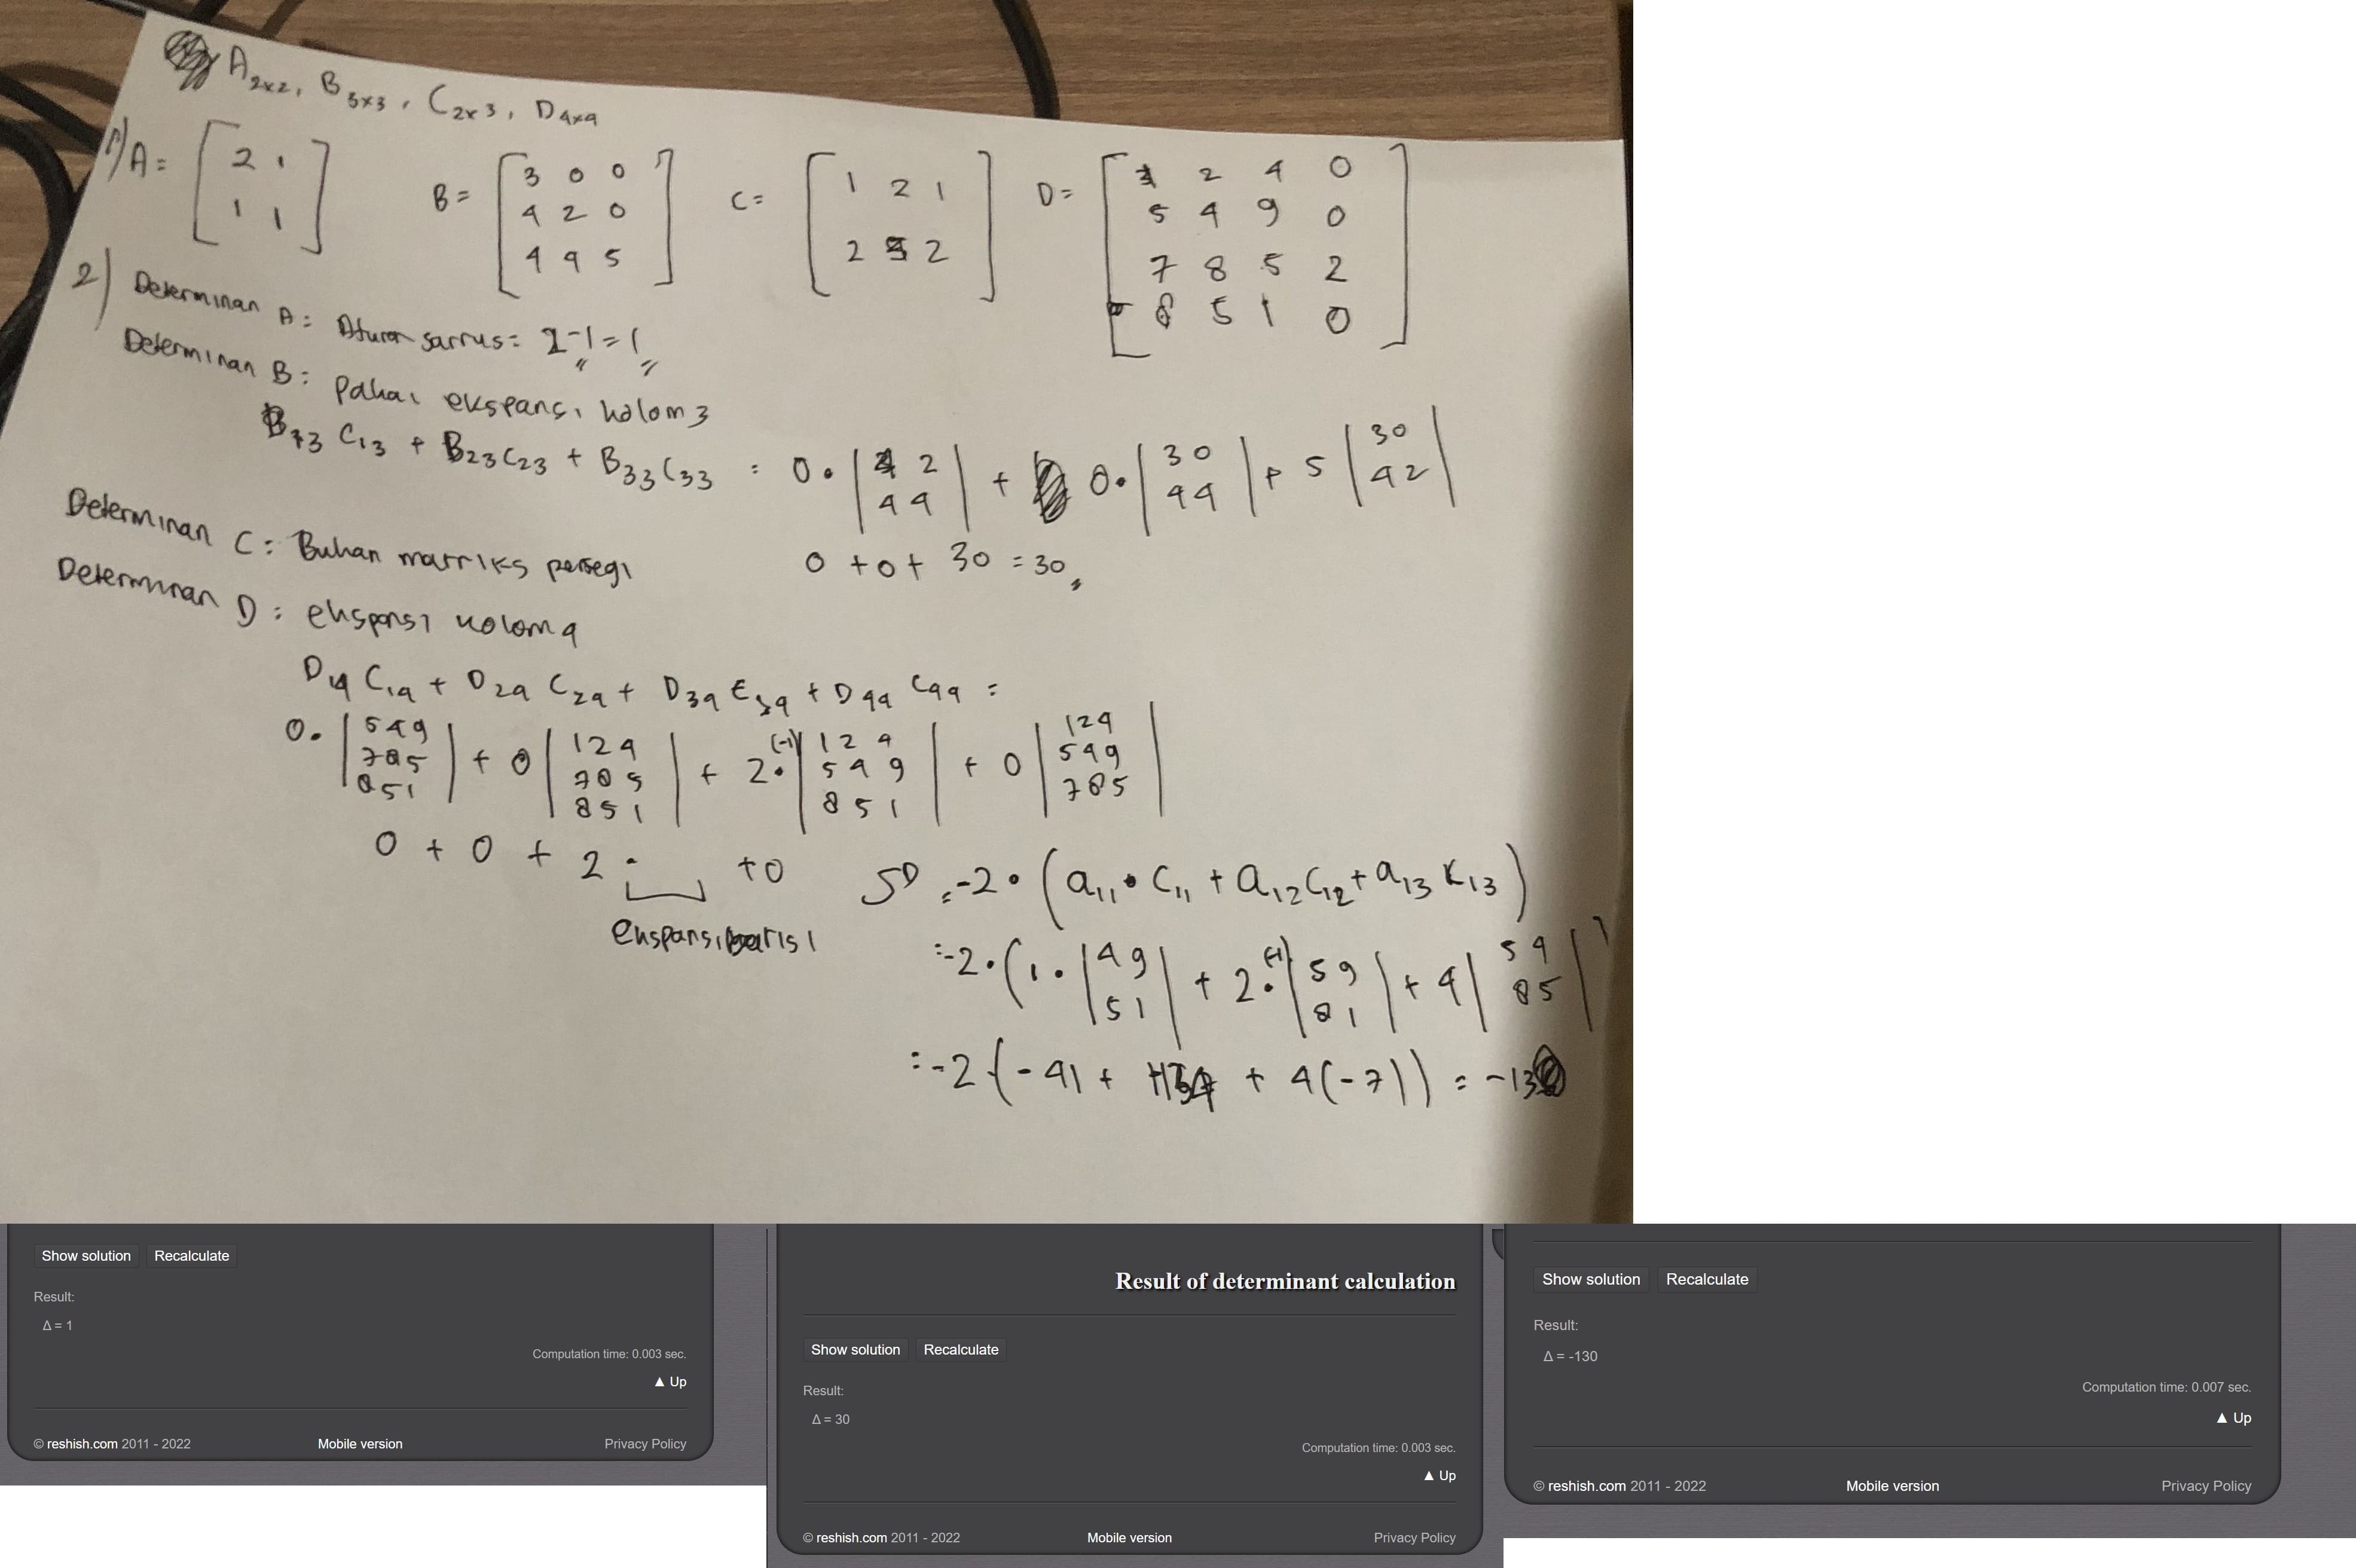 A2x2, B3x3, C2x3, D4x4
1) A = [ 2 1
1 1 ]
B = [ 3 0 0
4 2 0
4 9 5 ]
C = [ 1 2 1
2 3 2 ]
D = [ 1 2 4 0
5 4 9 0
7 8 5 2
8 5 1 0 ]
2) Determinan A : Aturan sarrus = 2-1 = 1
Determinan B : Pakai ekspansi kolom 3
B13 C13 + B23 C23 + B33 C33 = 0 . | 4 2
4 4 | + 0 . | 3 0
4 4 | + 5 | 3 0
4 2 |
0 + 0 + 30 = 30
Determinan C : Bukan matriks persegi
Determinan D : ekspansi kolom 4
D14 C14 + D24 C24 + D34 C34 + D44 C44 =
0 . | 5 4 9
7 8 5
8 5 1 | + 0 | 1 2 4
7 8 5
8 5 1 | + 2 . (-1) | 1 2 4
5 4 9
8 5 1 | + 0 | 1 2 4
5 4 9
7 8 5 |
0 + 0 + 2 . + 0
ekspansi baris 1
= -2 . ( a11 . C11 + a12 C12 + a13 C13 )
= -2 . ( 1 . | 4 9
5 1 | + 2 . (-1) | 5 9
8 1 | + 4 | 5 4
8 5 | )
= -2 ( -41 + 134 + 4(-7) ) = -13
Show solution Recalculate
Result:
Δ = 1
Computation time: 0.003 sec.
▲ Up
© reshish.com 2011 - 2022 Mobile version Privacy Policy
Result of determinant calculation
Show solution Recalculate
Result:
Δ = 30
Computation time: 0.003 sec.
▲ Up
© reshish.com 2011 - 2022 Mobile version Privacy Policy
Show solution Recalculate
Result:
Δ = -130
Computation time: 0.007 sec.
▲ Up
© reshish.com 2011 - 2022 Mobile version Privacy Policy